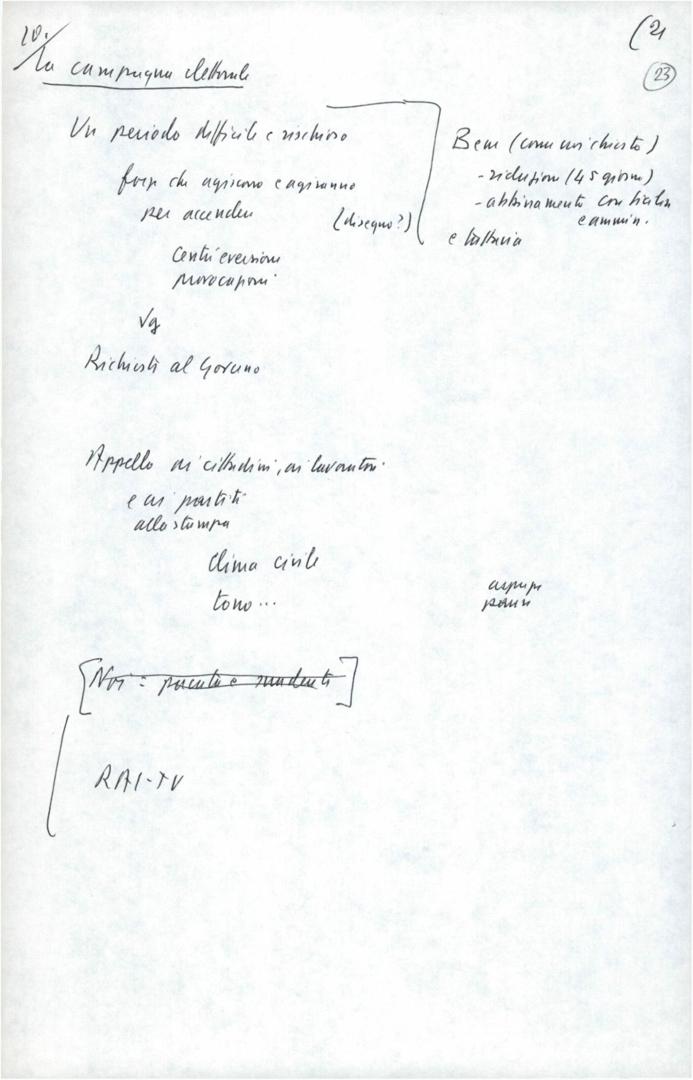 10.
(2
23
La campagna elettorale
Un periodo difficile e rischioso
forze che agiscono e agiranno
per accendere
(disegno?)
Centri eversione
provocazioni
Bene (come noi chiesto)
- riduzioni (45 giorni)
- abbinamento con Sicilia
e ammin.
e tuttavia
Richieste al Governo
Appello ai cittadini, ai lavoratori
e ai partiti
alla stampa
Clima civile
tono...
[Noi =
RAI-TV